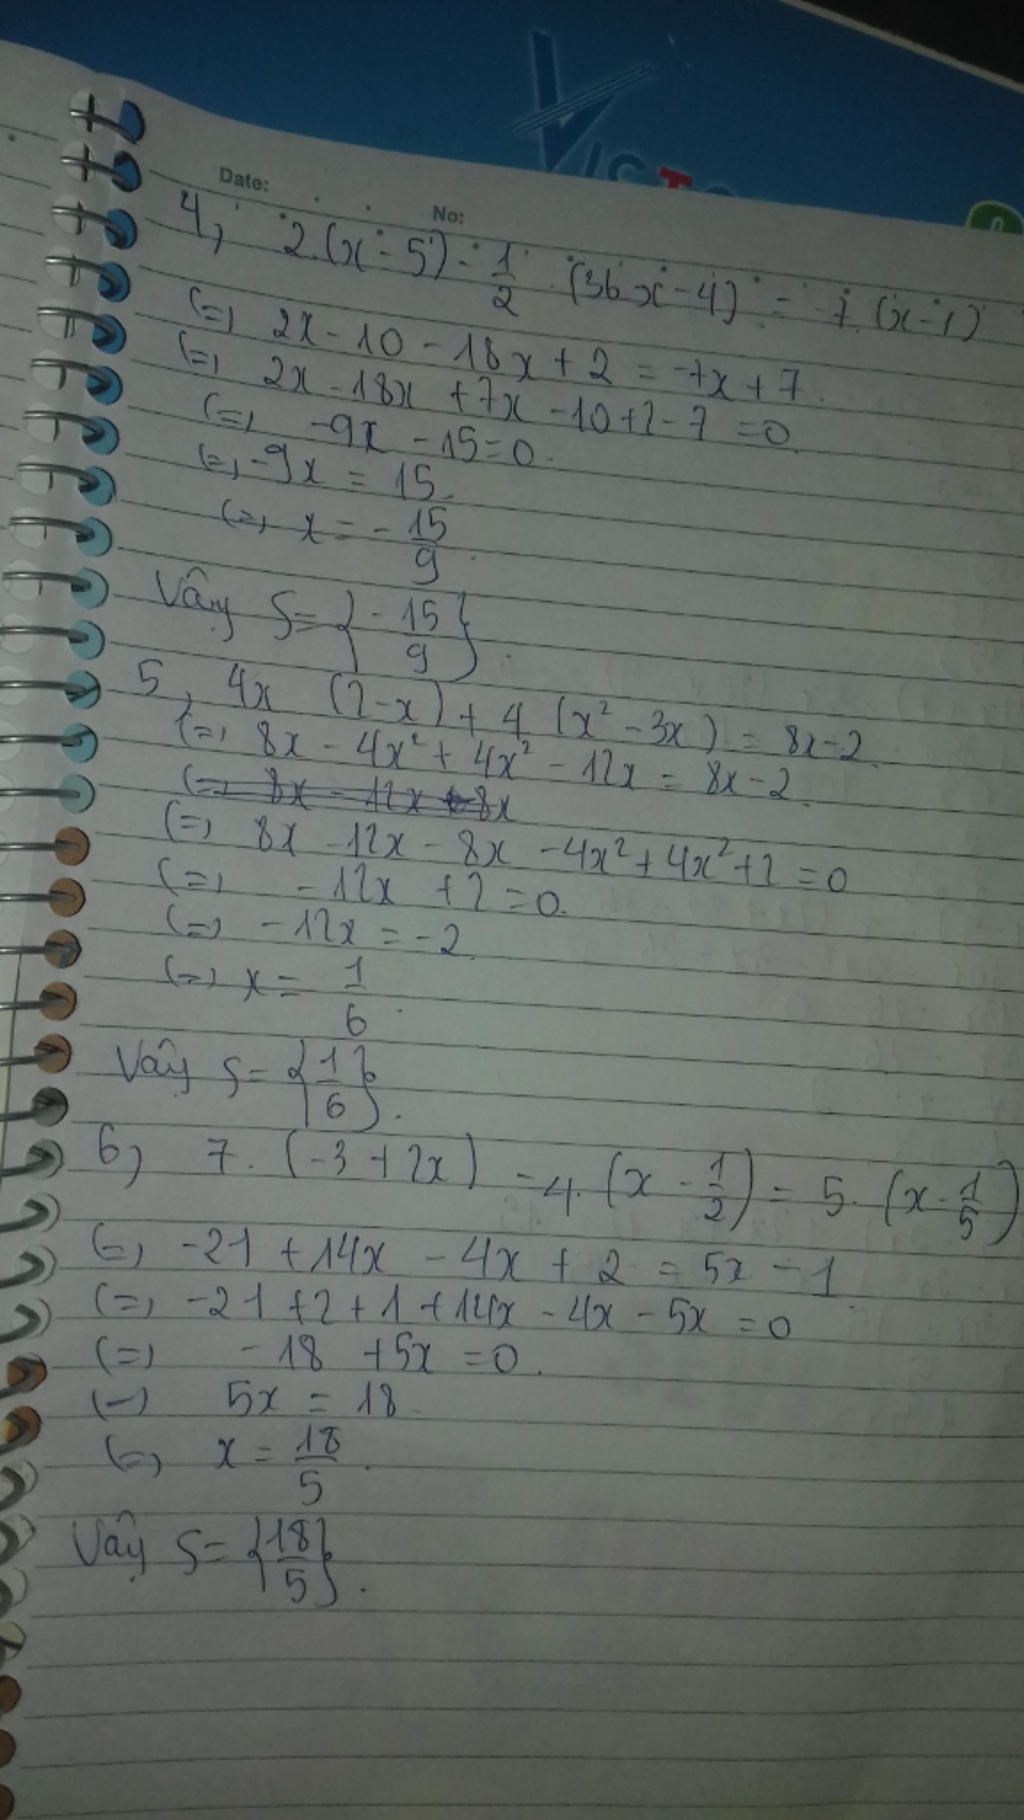 VICT
Date:
No:
4, 2.(x-5) - 1/2 (36x-4) = -7.(x-1)
(=) 2x - 10 - 18x + 2 = -7x + 7.
(=) 2x - 18x + 7x - 10 + 2 - 7 = 0
(=) -9x - 15 = 0.
(=) -9x = 15
(=) x = -15/9.
Vậy S = {-15/9}.
5, 4x (2-x) + 4 (x² - 3x) = 8x-2
(=) 8x - 4x² + 4x² - 12x = 8x - 2.
(=) 8x - 12x - 8x
(=) 8x - 12x - 8x - 4x² + 4x² + 2 = 0
(=) -12x + 2 = 0.
(=) -12x = -2
(=) x = 1/6.
Vậy S = {1/6}.
6, 7.(-3 + 2x) - 4.(x - 1/2) = 5.(x - 1/5)
(=) -21 + 14x - 4x + 2 = 5x - 1
(=) -21 + 2 + 1 + 14x - 4x - 5x = 0
(=) -18 + 5x = 0.
(=) 5x = 18
(=) x = 18/5.
Vậy S = {18/5}.